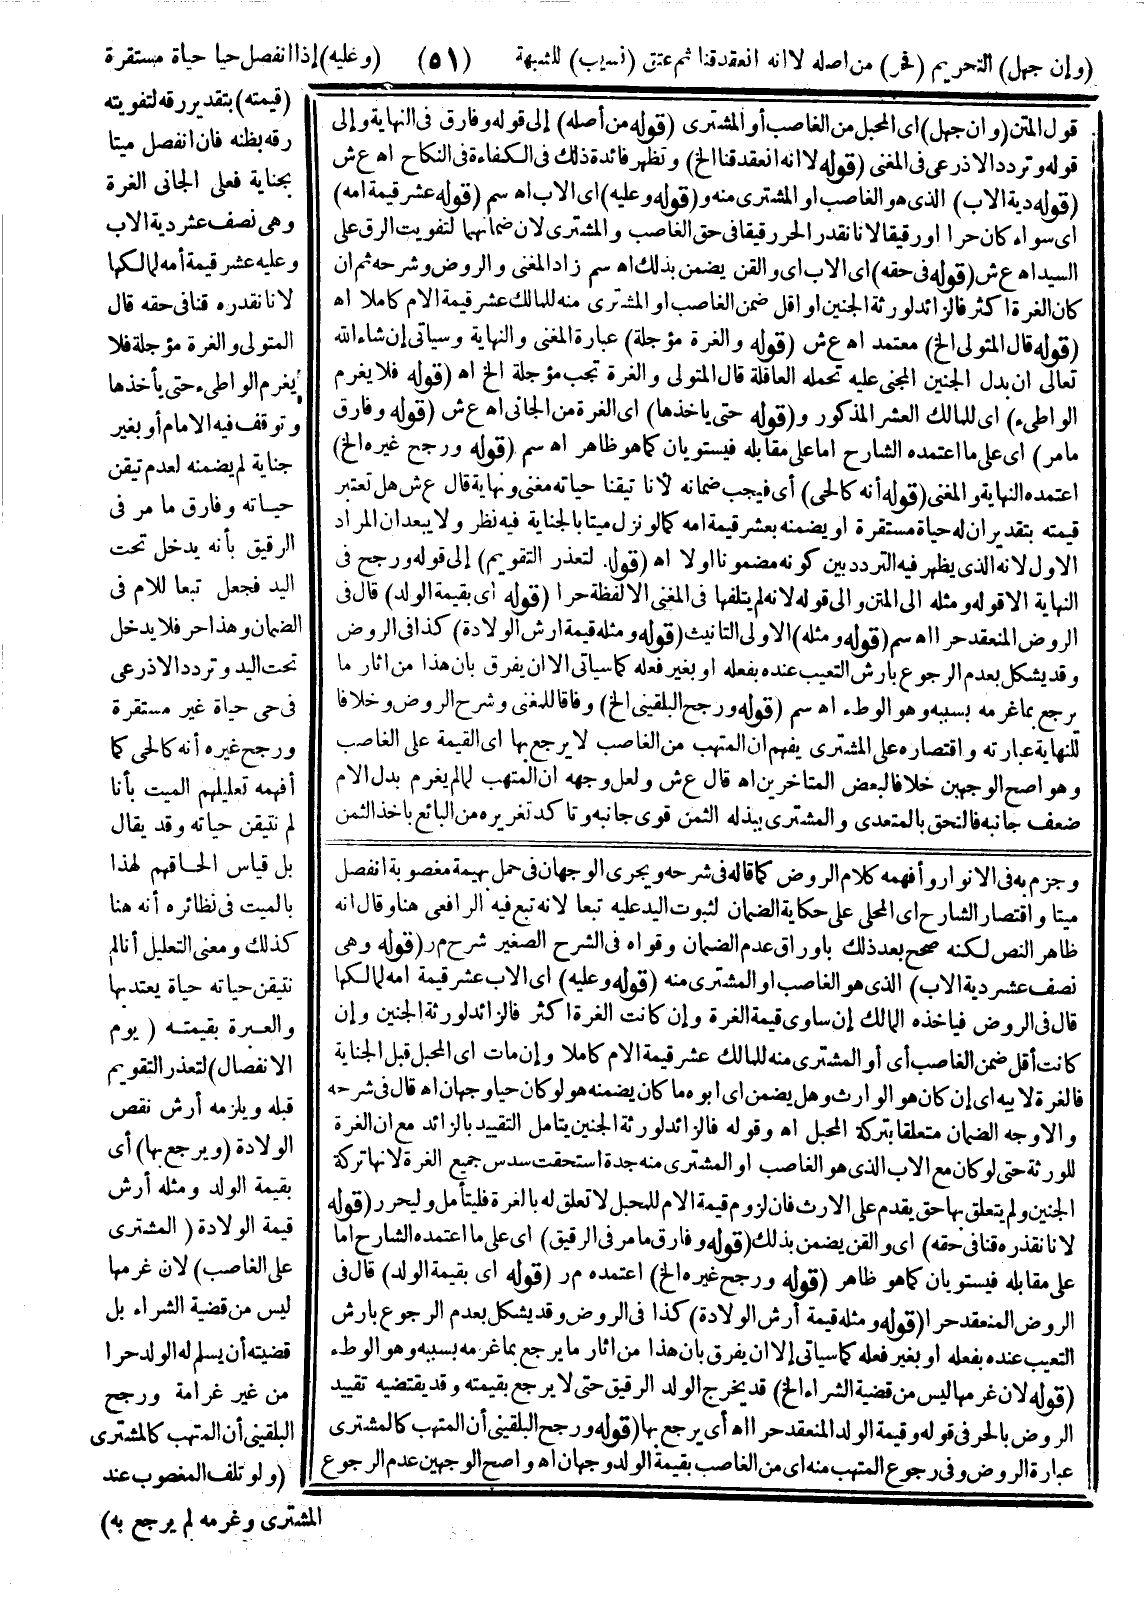 (وإن جهل) التحريم (فحر) من اصله لا انه انعقد قنا ثم عتق (نسيب) للشبهة (٥١) (وعليه) إذا انفصل حيا حياة مستقرة
(قيمته) بتقدير رقه لتفويته
رقه بظنه فان انفصل ميتا
بجناية فعلى الجانى الغرة
وهى نصف عشر دية الاب
وعليه عشر قيمة أمه لمالكها
لانا نقدره قنا فى حقه قال
المتولى والغرة مؤجلة فلا
يغرم الواطىء حتى يأخذها
وتوقف فيه الامام أو بغير
جناية لم يضمنه لعدم تيقن
حياته وفارق ما مر فى
الرقيق بأنه يدخل تحت
اليد فجعل تبعا للام فى
الضمان وهذا حر فلا يدخل
تحت اليد وتردد الاذرعى
فى حى حياة غير مستقرة
ورجح غيره أنه كالحى كما
أفهمه تعليلهم الميت بأنا
لم نتيقن حياته وقد يقال
بل قياس الحاقهم لهذا
بالميت فى نظائره أنه هنا
كذلك ومعنى التعليل أنا لم
نتيقن حياته حياة يعتد بها
والعبرة بقيمته (يوم
الانفصال) لتعذر التقويم
قبله ويلزمه أرش نقص
الولادة (ويرجع بها) أى
بقيمة الولد ومثله أرش
قيمة الولادة (المشترى
على الغاصب) لان غرمها
ليس من قضية الشراء بل
قضيته أن يسلم له الولد حرا
من غير غرامة ورجح
البلقينى أن المتهب كالمشترى
(ولو تلف المغصوب عند
المشترى وغرمه لم يرجع به)
قول المتن (وان جهل) اى المحبل من الغاصب أو المشترى (قوله من أصله) إلى قوله وفارق فى النهاية وإلى
قوله وتردد الاذرعى فى المغنى (قوله لا انه انعقد قنا الخ) وتظهر فائدة ذلك فى الكفاءة فى النكاح اه ع ش
(قوله دية الاب) الذى هو الغاصب او المشترى منه و(قوله وعليه) اى الاب اه سم (قوله عشر قيمة امه)
اى سواء كان حرا او رقيقا لانا نقدر الحر رقيقا فى حق الغاصب والمشترى لان ضمانهما لتفويت الرق على
السيد اه ع ش (قوله فى حقه) اى الاب اى والقن يضمن بذلك اه سم زاد المغنى والروض وشرحه ثم ان
كان الغرة اكثر فالزائد لورثة الجنين او اقل ضمن الغاصب او المشترى منه للمالك عشر قيمة الام كاملا اه
(قوله قال المتولى الخ) معتمد اه ع ش (قوله والغرة مؤجلة) عبارة المغنى والنهاية وسياتى إن شاء الله
تعالى ان بدل الجنين المجنى عليه تحمله العاقلة قال المتولى والغرة تجب مؤجلة الخ اه (قوله فلا يغرم
الواطىء) اى للمالك العشر المذكور و(قوله حتى ياخذها) اى الغرة من الجانى اه ع ش (قوله وفارق
مامر) اى على ما اعتمده الشارح اما على مقابله فيستويان كما هو ظاهر اه سم (قوله ورجح غيره الخ)
اعتمده النهاية والمغنى (قوله أنه كالحى) أى فيجب ضمانه لأنا تيقنا حياته مغنى ونهاية قال ع ش هل تعتبر
قيمته بتقدير ان له حياة مستقرة او يضمنه بعشر قيمة امه كما لو نزل ميتا بالجناية فيه نظر ولا يبعد ان المراد
الاول لانه الذى يظهر فيه التردد بين كونه مضمونا او لا اه (قوله. لتعذر التقويم) إلى قوله ورجح فى
النهاية الا قوله ومثله الى المتن والى قوله لانه لم يتلفها فى المغنى الا لفظة حرا (قوله اى بقيمة الولد) قال فى
الروض المنعقد حرا اه سم (قوله ومثله) الاولى التانيث (قوله ومثله قيمة ارش الولادة) كذا فى الروض
وقد يشكل بعدم الرجوع بارش التعيب عنده بفعله او بغير فعله كما سياتى الا ان يفرق بان هذا من اثار ما
يرجع بما غرمه بسببه وهو الوطء اه سم (قوله ورجح البلقينى الخ) وفاقا للمغنى وشرح الروض وخلافا
للنهاية عبارته واقتصاره على المشترى يفهم ان المتهب من الغاصب لا يرجع بها اى القيمة على الغاصب
وهو اصح الوجهين خلافا لبعض المتاخرين اه قال ع ش ولعل وجهه ان المتهب لما لم يغرم بدل الام
ضعف جانبه فالتحق بالمتعدى والمشترى ببذله الثمن قوى جانبه وتاكد تغريره من البائع باخذ الثمن
وجزم به فى الانوار وأفهمه كلام الروض كما قاله فى شرحه ويجرى الوجهان فى حمل بهيمة مغصوبة انفصل
ميتا واقتصار الشارح اى المحلى على حكاية الضمان لثبوت اليد عليه تبعا لانه تبع فيه الرافعى هنا وقال انه
ظاهر النص لكنه صحح بعد ذلك باوراق عدم الضمان وقواه فى الشرح الصغير شرح مر (قوله وهى
نصف عشر دية الاب) الذى هو الغاصب او المشترى منه (قوله وعليه) اى الاب عشر قيمة امه لمالكها
قال فى الروض فياخذه المالك إن ساوى قيمة الغرة وإن كانت الغرة اكثر فالزائد لورثة الجنين وإن
كانت أقل ضمن الغاصب أى أو المشترى منه للمالك عشر قيمة الام كاملا وإن مات اى المحبل قبل الجناية
فالغرة لابيه اى إن كان هو الوارث وهل يضمن اى ابوه ما كان يضمنه هو لو كان حيا وجهان اه قال فى شرحه
والاوجه الضمان متعلقا بتركة المحبل اه وقوله فالزائد لورثة الجنين يتامل التقييد بالزائد مع ان الغرة
للورثة حتى لو كان مع الاب الذى هو الغاصب او المشترى منه جدة استحقت سدس جميع الغرة لانها تركة
الجنين ولم يتعلق بها حق يقدم على الارث فان لزوم قيمة الام للمحبل لا تعلق له بالغرة فليتأمل وليحرر (قوله
لانا نقدره قنا فى حقه) اى والقن يضمن بذلك (قوله وفارق مامر فى الرقيق) اى على ما اعتمده الشارح اما
على مقابله فيستويان كما هو ظاهر (قوله ورجح غيره الخ) اعتمده مر (قوله اى بقيمة الولد) قال فى
الروض المنعقد حرا (قوله ومثله قيمة أرش الولادة) كذا فى الروض وقد يشكل بعدم الرجوع بارش
التعيب عنده بفعله او بغير فعله كما سياتى إلا ان يفرق بان هذا من اثار ما يرجع بما غرمه بسببه وهو الوطء
(قوله لان غرمها ليس من قضية الشراء الخ) قد يخرج الولد الرقيق حتى لا يرجع بقيمته وقد يقتضيه تقييد
الروض بالحر فى قوله وقيمة الولد المنعقد حرا اه أى يرجع بها (قوله ورجح البلقينى أن المتهب كالمشترى
عبارة الروض وفى رجوع المتهب منه اى من الغاصب بقيمة الولد وجهان اه واصح الوجهين عدم الرجوع